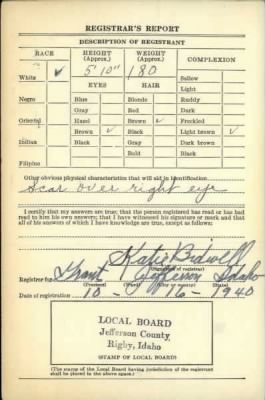 REGISTRAR'S REPORT
DESCRIPTION OF REGISTRANT
RACE
HEIGHT
(Approx.)
WEIGHT
(Approx.)
COMPLEXION
White ✓
5' 10" 180
Sallow
EYES HAIR
Light
Negro Blue Blonde Ruddy
Gray Red Dark
Oriental Hazel Brown ✓ Freckled
Brown ✓ Black Light brown ✓
Indian Black Gray Dark brown
Bald Black
Filipino
Other obvious physical characteristics that will aid in identification
Scar over right eye
I certify that my answers are true; that the person registered has read or has had
read to him his own answers; that I have witnessed his signature or mark and that
all of his answers of which I have knowledge are true, except as follows:
Katie Bidwell
(Signature of registrar)
Registrar for Grant Jefferson Idaho
(Precinct) (City or county) (State)
Date of registration 10 - 16 - 1940
LOCAL BOARD
Jefferson County
Rigby, Idaho
(STAMP OF LOCAL BOARD)
(The stamp of the Local Board having jurisdiction of the registrant
shall be placed in the above space.)